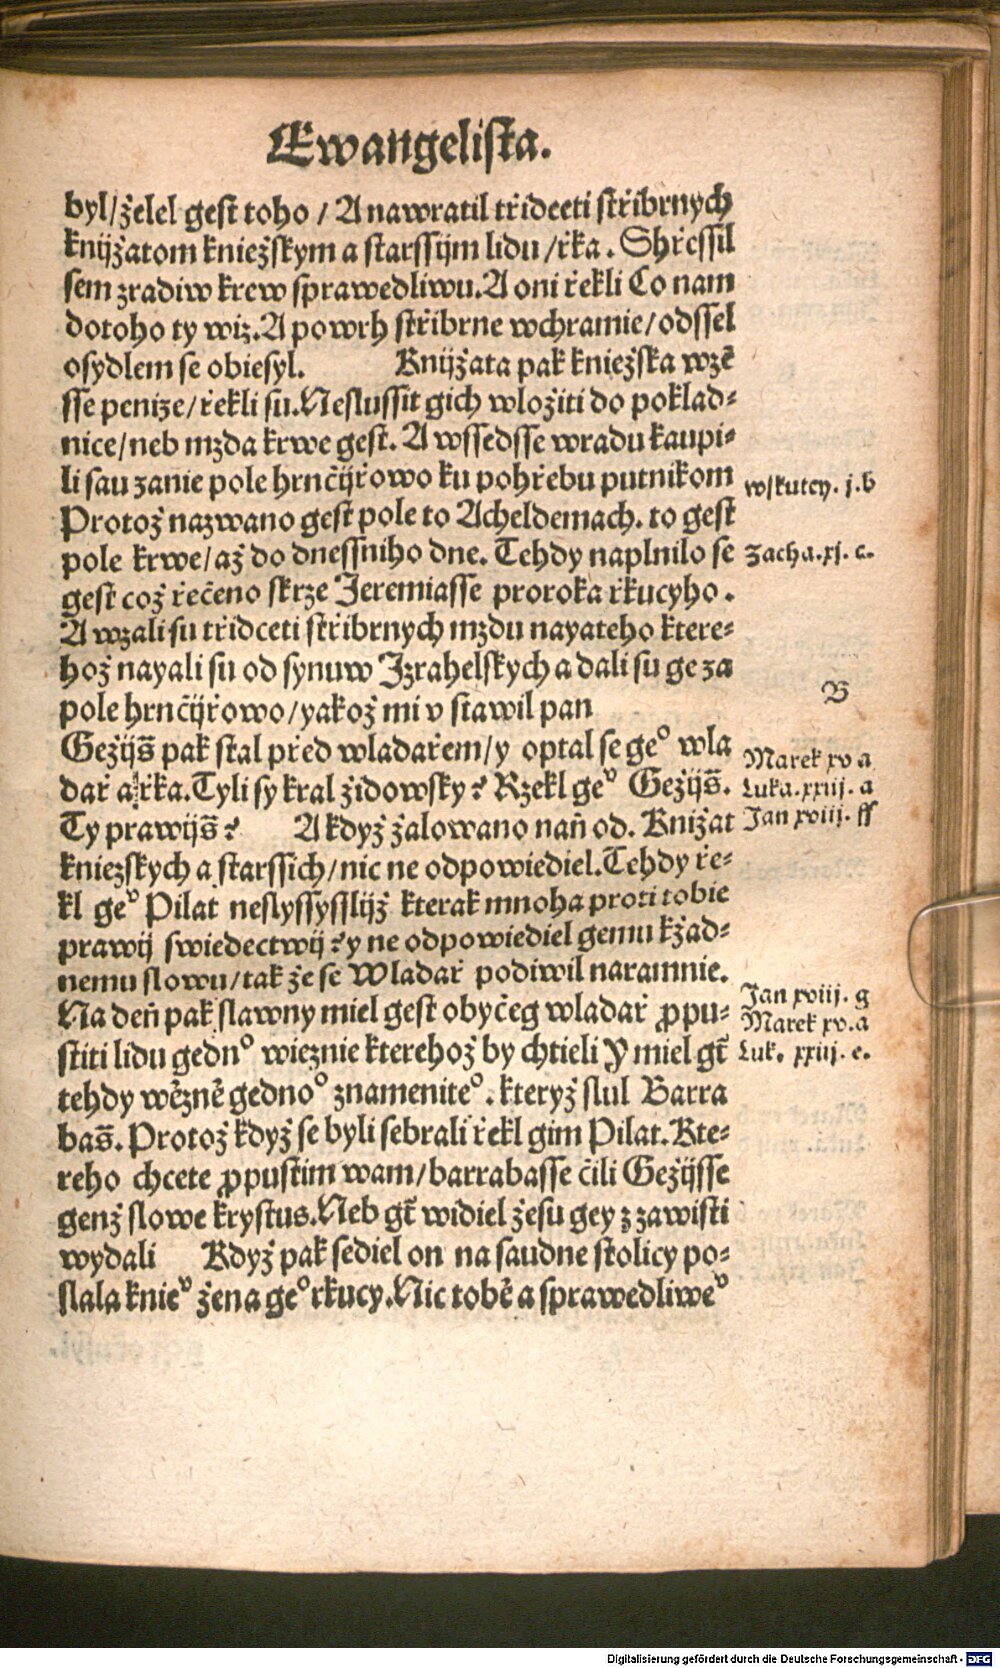 Ewangelista.
byl/ želel gest toho / A nawratil třidceti střibrnych
knijžatom kniežskym a starssijm lidu /řka. Shřessil
sem zradiw krew sprawedliwu. A oni řekli Co nam
dotoho ty wiz. A powrh střibrne wchramie/ odssel
osydlem se obiesyl. Knijžata pak kniežska wzē
sse penize/ řekli su. Neslussit gich wložiti do poklad⸗
nice/ neb mzda krwe gest. A wssedsse wradu kaupi⸗
li sau zanie pole hrnčijřowo ku pohřebu putnikom
Protož nazwano gest pole to Acheldemach. to gest
pole krwe/ až do dnessniho dne. Tehdy naplnilo se
gest což řečeno skrze Jeremiasse proroka řkucyho.
A wzali su třidceti střibrnych mzdu nayateho ktere⸗
hož nayali su od synuw Jzrahelskych a dali su ge za
pole hrnčijřowo/ yakož mi v stawil pan
Gežijs̄ pak stal před wladařem/ y optal se geº wla
dař a řka. Tyli sy kral židowsky? Rzekl geᵛ Gežijs̄.
Ty prawijs̄? A když žalowano nań od. Knižat
kniezskych a starssich/ nic ne odpowiediel. Tehdy ře⸗
kl geᵛ Pilat neslyssysslijž kterak mnoha proti tobie
prawij swiedectwij? y ne odpowiediel gemu kžad⸗
nemu slowu/ tak že se Wladař podiwil naramnie.
Na deń pak slawny miel gest obyčeg wladař ꝓpu⸗
stiti lidu gednº wieznie kterehož by chtieli Y miel gt̄
tehdy wēznē gednoº znameniteº. kteryž slul Barra
bas̄. Protož když se byli sebrali řekl gim Pilat. Kte⸗
reho chcete ꝓpustim wam/ barrabasse čili Gežijsse
genž slowe krystus. Neb gt̄ widiel žesu gey z zawisti
wydali Když pak sediel on na saudne stolicy po⸗
slala knieᵛ žena geº rkucy. Nic tobě a sprawedliweᵛ
w skutcy. j. b
Zacha. xj. c.
B
Marek xv a
Luka. xxiij. a
Jan xviij. ff
Jan xviij. g
Marek xv. a
Luk. xxiij. e.
Digitalisierung gefördert durch die Deutsche Forschungsgemeinschaft - DFG